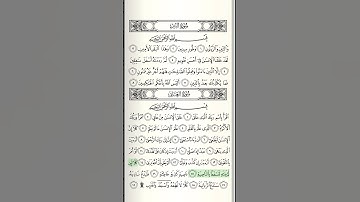 سُورَةُ التِّينِ
بِسْمِ اللَّهِ الرَّحْمَٰنِ الرَّحِيمِ
وَالتِّينِ وَالزَّيْتُونِ ١ وَطُورِ سِينِينَ ٢ وَهَٰذَا الْبَلَدِ الْأَمِينِ ٣
لَقَدْ خَلَقْنَا الْإِنسَانَ فِي أَحْسَنِ تَقْوِيمٍ ٤ ثُمَّ رَدَدْنَاهُ أَسْفَلَ سَافِلِينَ
٥ إِلَّا الَّذِينَ آمَنُوا وَعَمِلُوا الصَّالِحَاتِ فَلَهُمْ أَجْرٌ غَيْرُ مَمْنُونٍ
٦ فَمَا يُكَذِّبُكَ بَعْدُ بِالدِّينِ ٧ أَلَيْسَ اللَّهُ بِأَحْكَمِ الْحَاكِمِينَ ٨
سُورَةُ العَلَقِ
بِسْمِ اللَّهِ الرَّحْمَٰنِ الرَّحِيمِ
اقْرَأْ بِاسْمِ رَبِّكَ الَّذِي خَلَقَ ١ خَلَقَ الْإِنسَانَ مِنْ عَلَقٍ ٢ اقْرَأْ وَرَبُّكَ
الْأَكْرَمُ ٣ الَّذِي عَلَّمَ بِالْقَلَمِ ٤ عَلَّمَ الْإِنسَانَ مَا لَمْ يَعْلَمْ ٥ كَلَّا إِنَّ الْإِنسَانَ
لَيَطْغَىٰ ٦ أَن رَّآهُ اسْتَغْنَىٰ ٧ إِنَّ إِلَىٰ رَبِّكَ الرُّجْعَىٰ ٨ أَرَأَيْتَ الَّذِي
يَنْهَىٰ ٩ عَبْدًا إِذَا صَلَّىٰ ١٠ أَرَأَيْتَ إِن كَانَ عَلَى الْهُدَىٰ ١١ أَوْ أَمَرَ
بِالتَّقْوَىٰ ١٢ أَرَأَيْتَ إِن كَذَّبَ وَتَوَلَّىٰ ١٣ أَلَمْ يَعْلَم بِأَنَّ اللَّهَ يَرَىٰ ١٤ كَلَّا لَئِن
لَّمْ يَنتَهِ لَنَسْفَعًا بِالنَّاصِيَةِ ١٥ نَاصِيَةٍ كَاذِبَةٍ خَاطِئَةٍ ١٦ فَلْيَدْعُ نَادِيَهُ
١٧ سَنَدْعُ الزَّبَانِيَةَ ١٨ كَلَّا لَا تُطِعْهُ وَاسْجُدْ وَاقْتَرِب ۩ ١٩